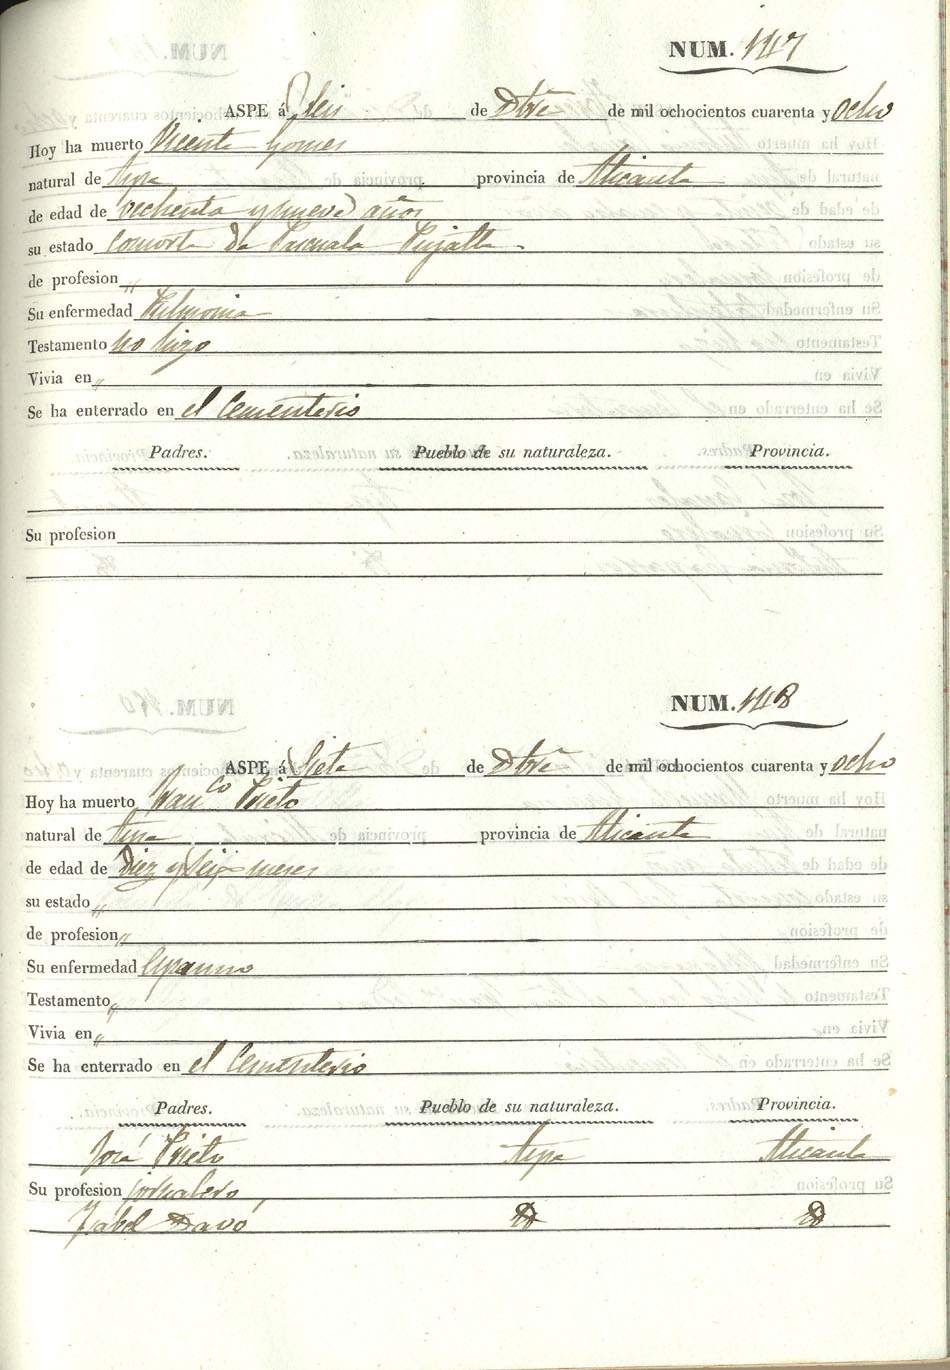 NUM. 147
ASPE á Seis de Dbre de mil ochocientos cuarenta y ocho
Hoy ha muerto Vicente Gomes
natural de Aspe provincia de Alicante
de edad de y nueve años
su estado consorte de Pascuala Pujalte
de profesion „
Su enfermedad Pulmonia
Testamento no hizo
Vivia en „
Se ha enterrado en el Cementerio
Padres. Pueblo de su naturaleza. Provincia.
Su profesion
NUM. 148
ASPE á Siete de Dbre de mil ochocientos cuarenta y ocho
Hoy ha muerto Franco Prieto
natural de Aspe provincia de Alicante
de edad de Diez y seis meses
su estado „
de profesion „
Su enfermedad
Testamento „
Vivia en „
Se ha enterrado en el Cementerio
Padres. Pueblo de su naturaleza. Provincia.
José Prieto Aspe Alicante
Su profesion jornalero
Ysabel Davó